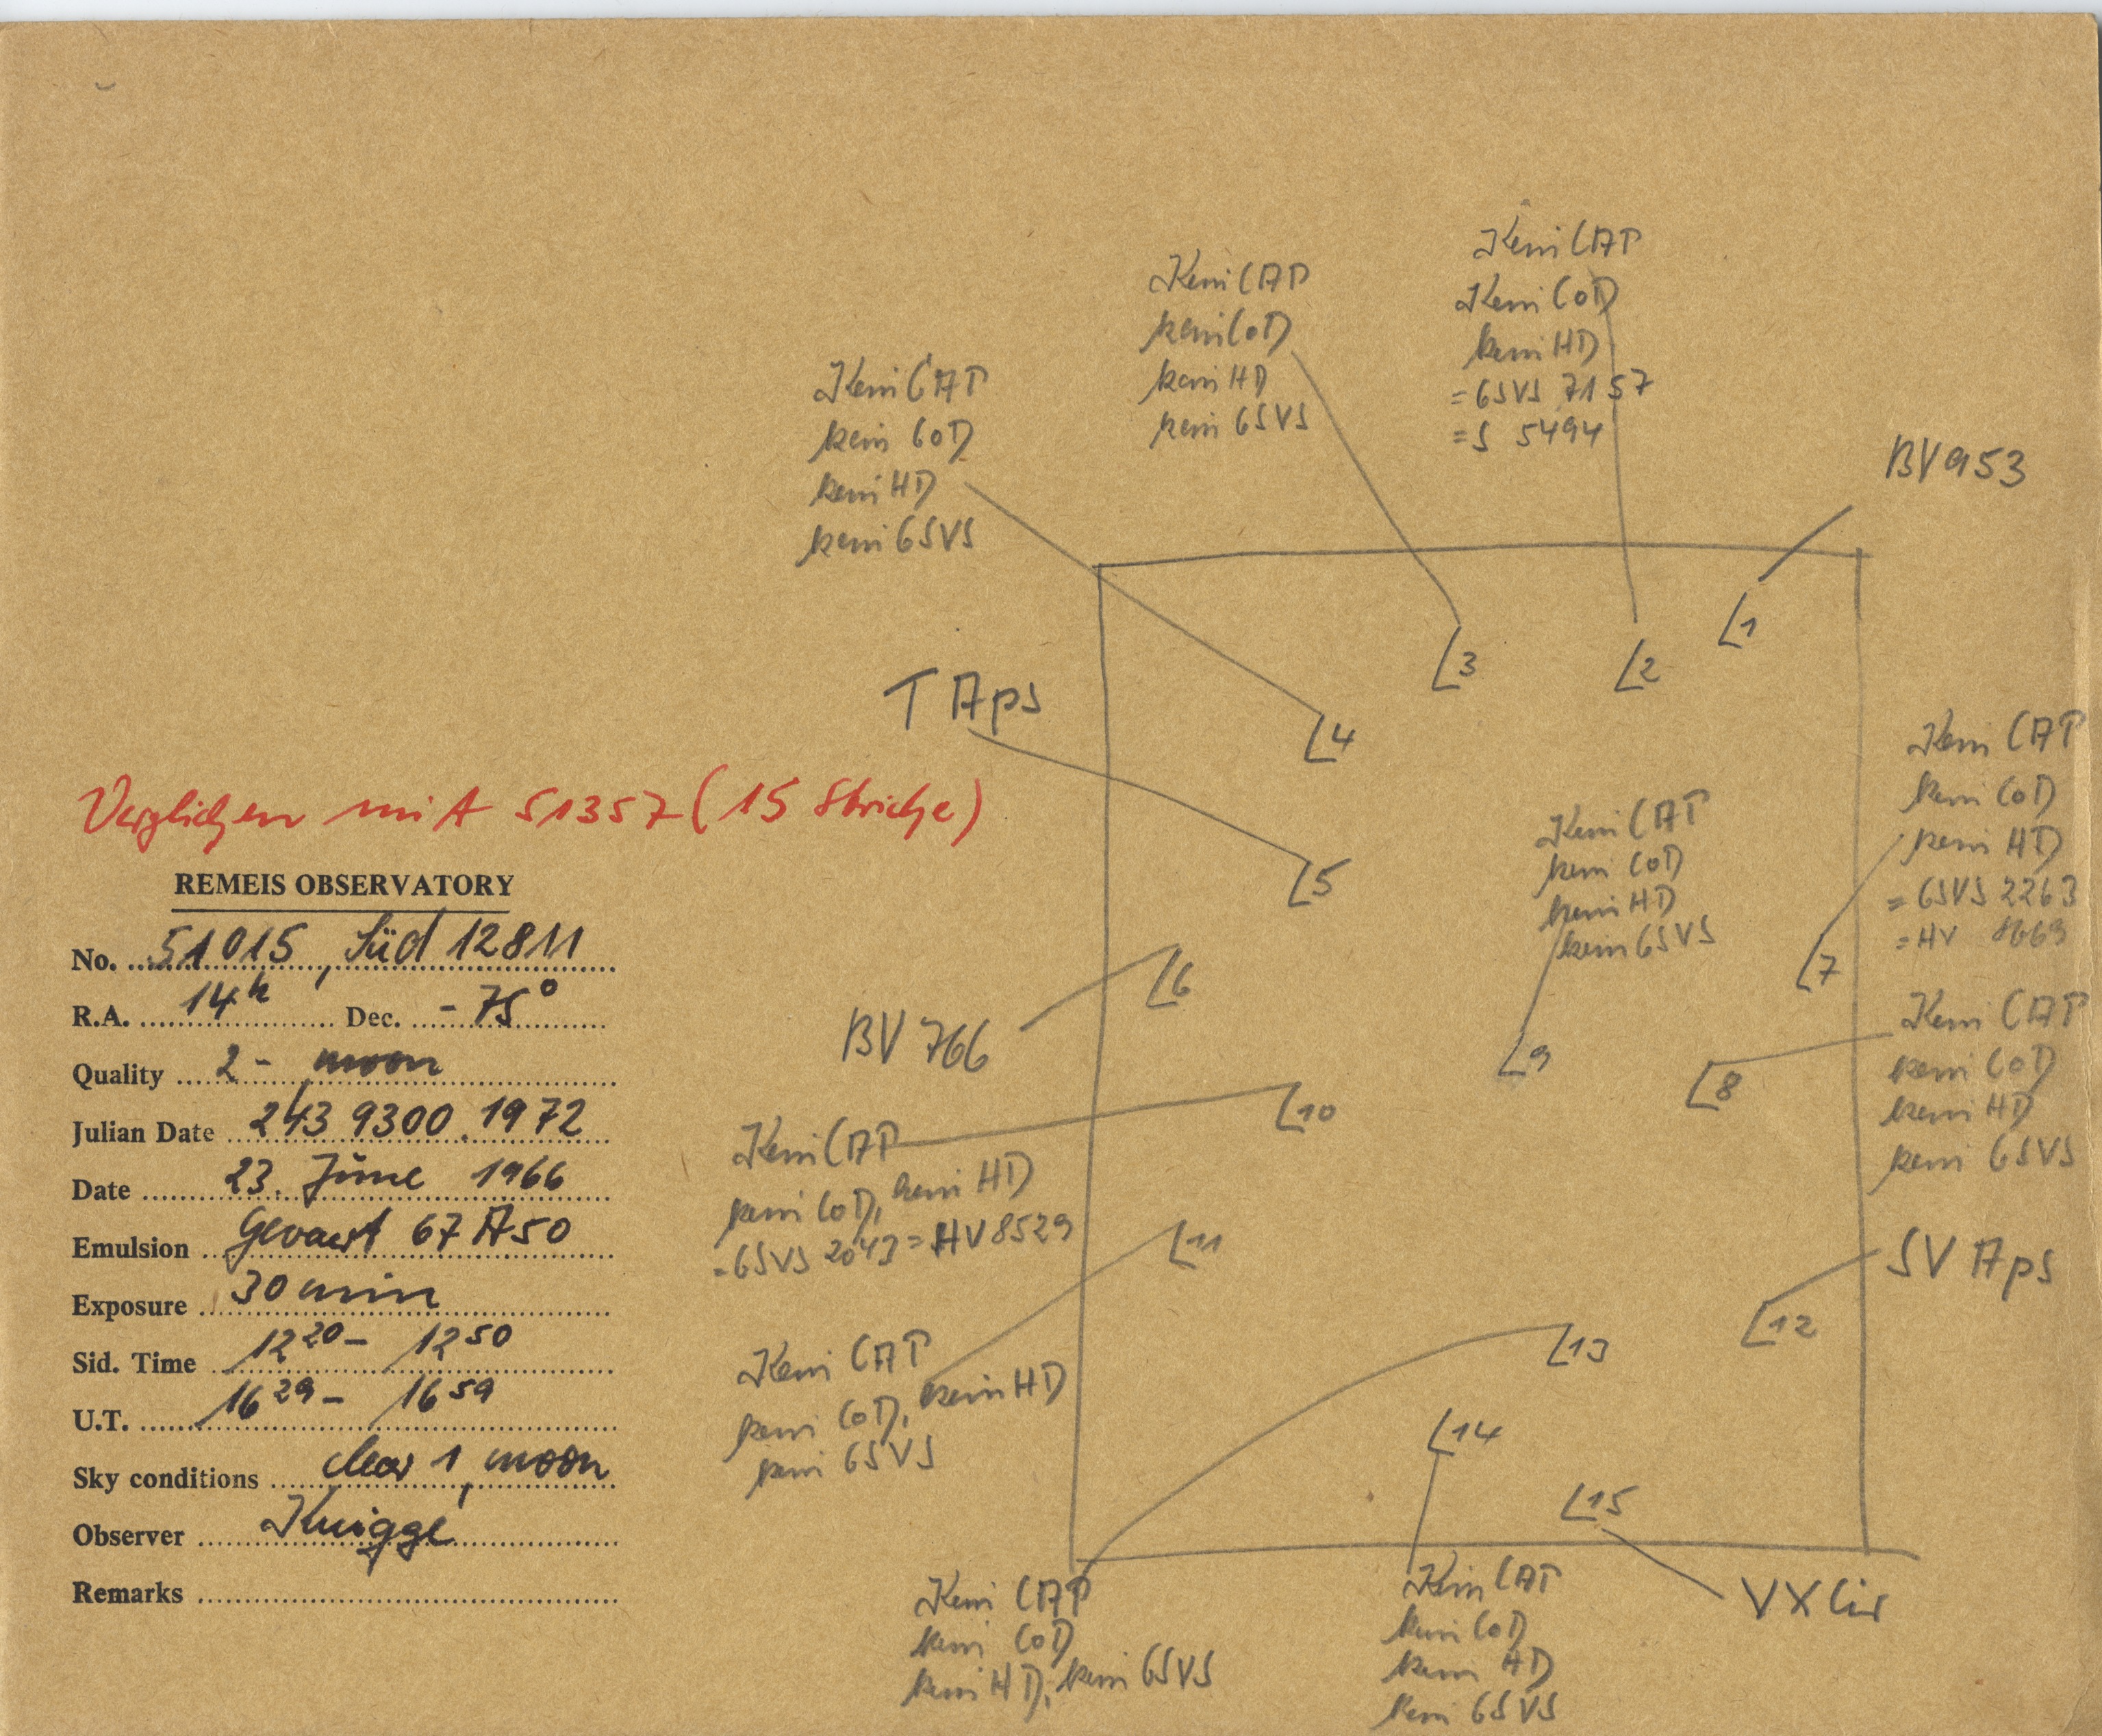 Kein CAP
Kein CoD
kein HD
= GSVS 7157
= S 5494
Kein CAP
kein CoD
kein HD
kein GSVS
Kein CAP
kein CoD
kein HD
kein GSVS
BV 953
1
2
3
4
T Aps
5
Kein CAP
kein CoD
kein HD
= GSVS 2263
= HV 8669
7
Kein CAP
kein CoD
kein HD
kein GSVS
9
6
BV 766
Kein CAP
kein CoD
kein HD
kein GSVS
8
10
Kein CAP
kein CoD, kein HD
= GSVS 2043 = HV 8529
11
Kein CAP
kein CoD, kein HD
kein GSVS
SV Aps
12
13
14
15
VX Cir
Kein CAP
kein CoD
kein HD, kein GSVS
Kein CAP
kein CoD
kein HD
kein GSVS
Verglichen mit 51357 (15 Striche)
REMEIS OBSERVATORY
No. 51015, Süd 12811
R.A. 14h Dec. -75°
Quality 2- moon
Julian Date 243 9300.1972
Date 23. June 1966
Emulsion Gevaert 67 A50
Exposure 30 min
Sid. Time 12 20 - 12 50
U.T. 16 29 - 16 59
Sky conditions clear 1, moon
Observer Knigge
Remarks